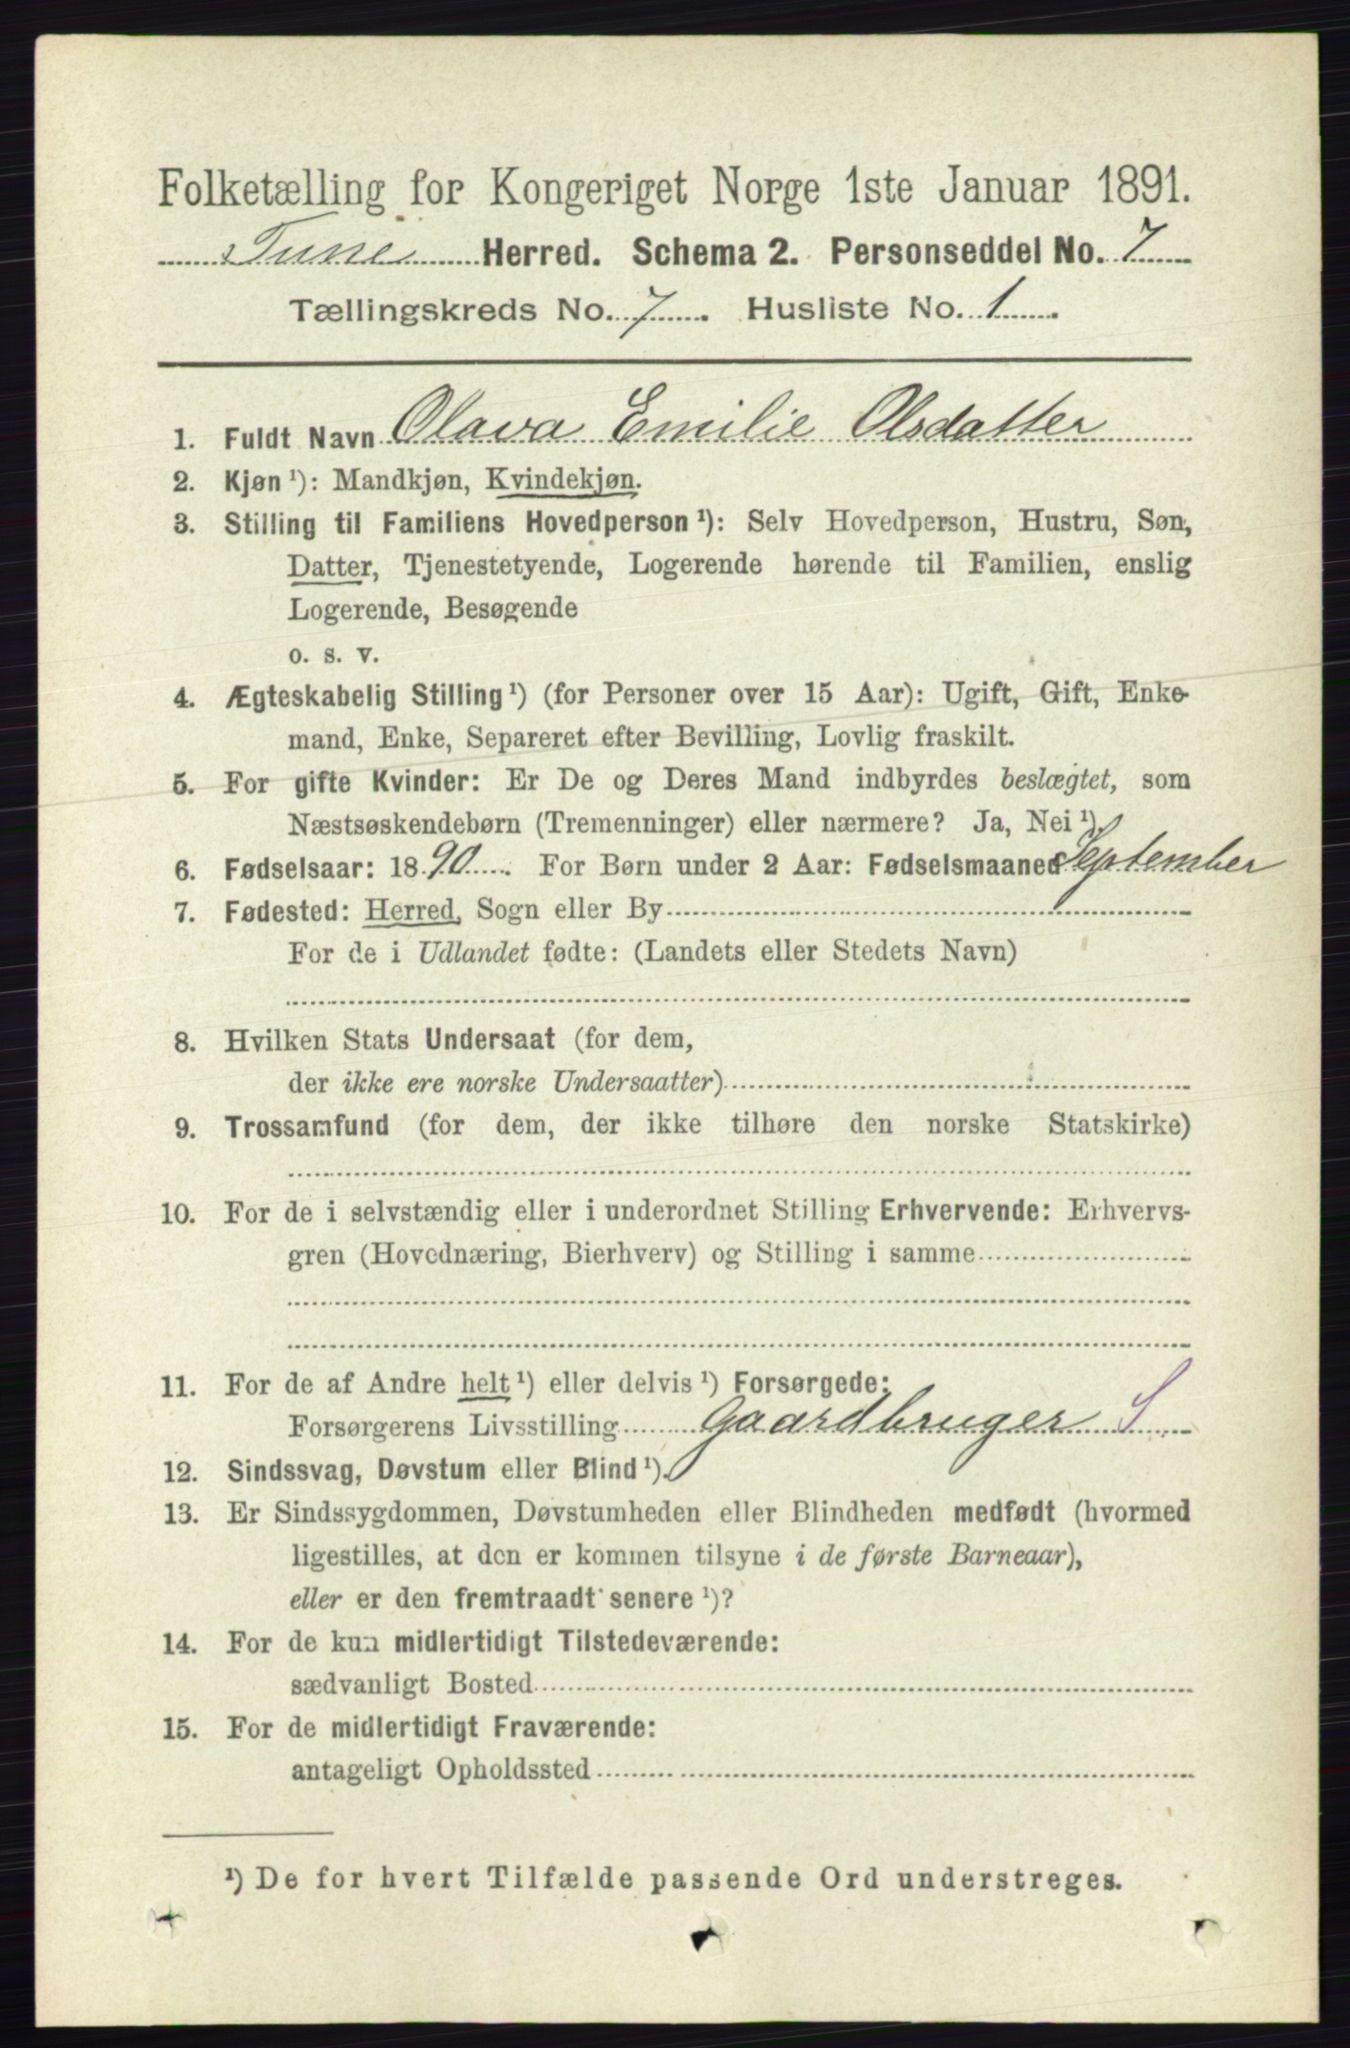 Folketælling for Kongeriget Norge 1ste Januar 1891.
Tune Herred. Schema 2. Personseddel No. 7
Tællingskreds No. 7. Husliste No. 1.
1. Fuldt Navn Olava Emilie Olsdatter
2. Kjøn ¹): Mandkjøn, Kvindekjøn.
3. Stilling til Familiens Hovedperson ¹): Selv Hovedperson, Hustru, Søn,
Datter, Tjenestetyende, Logerende hørende til Familien, enslig
Logerende, Besøgende
o. s. v.
4. Ægteskabelig Stilling ¹) (for Personer over 15 Aar): Ugift, Gift, Enke-
mand, Enke, Separeret efter Bevilling, Lovlig fraskilt.
5. For gifte Kvinder: Er De og Deres Mand indbyrdes beslægtet, som
Næstsøskendebørn (Tremenninger) eller nærmere? Ja, Nei ¹).
6. Fødselsaar: 1890. For Børn under 2 Aar: Fødselsmaaned September
7. Fødested: Herred, Sogn eller By
For de i Udlandet fødte: (Landets eller Stedets Navn)
8. Hvilken Stats Undersaat (for dem,
der ikke ere norske Undersaatter)
9. Trossamfund (for dem, der ikke tilhøre den norske Statskirke)
10. For de i selvstændig eller i underordnet Stilling Erhvervende: Erhvervs-
gren (Hovednæring, Bierhverv) og Stilling i samme
11. For de af Andre helt ¹) eller delvis ¹) Forsørgede:
Forsørgerens Livsstilling Gaardbruger S
12. Sindssvag, Døvstum eller Blind ¹).
13. Er Sindssygdommen, Døvstumheden eller Blindheden medfødt (hvormed
ligestilles, at den er kommen tilsyne i de første Barneaar),
eller er den fremtraadt senere ¹)?
14. For de kun midlertidigt Tilstedeværende:
sædvanligt Bosted
15. For de midlertidigt Fraværende:
antageligt Opholdssted
¹) De for hvert Tilfælde passende Ord understreges.